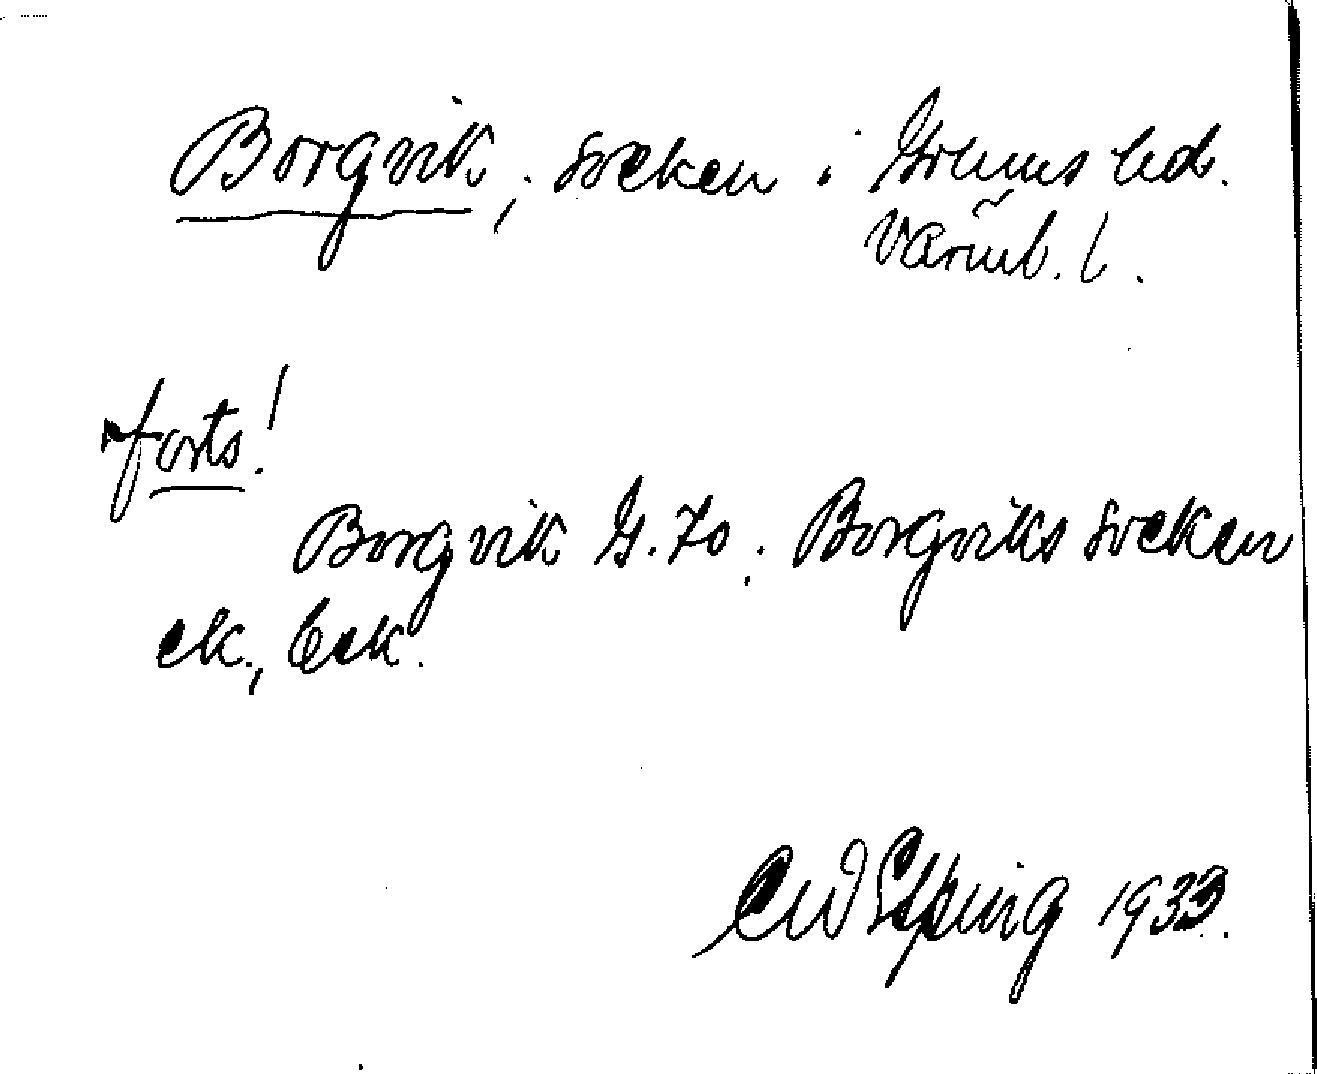 Borgvik, socken i Grums hd.
Värml. l.
forts!
Borgvik G. Ks. Borgviks socken
ek., bek.
1933.